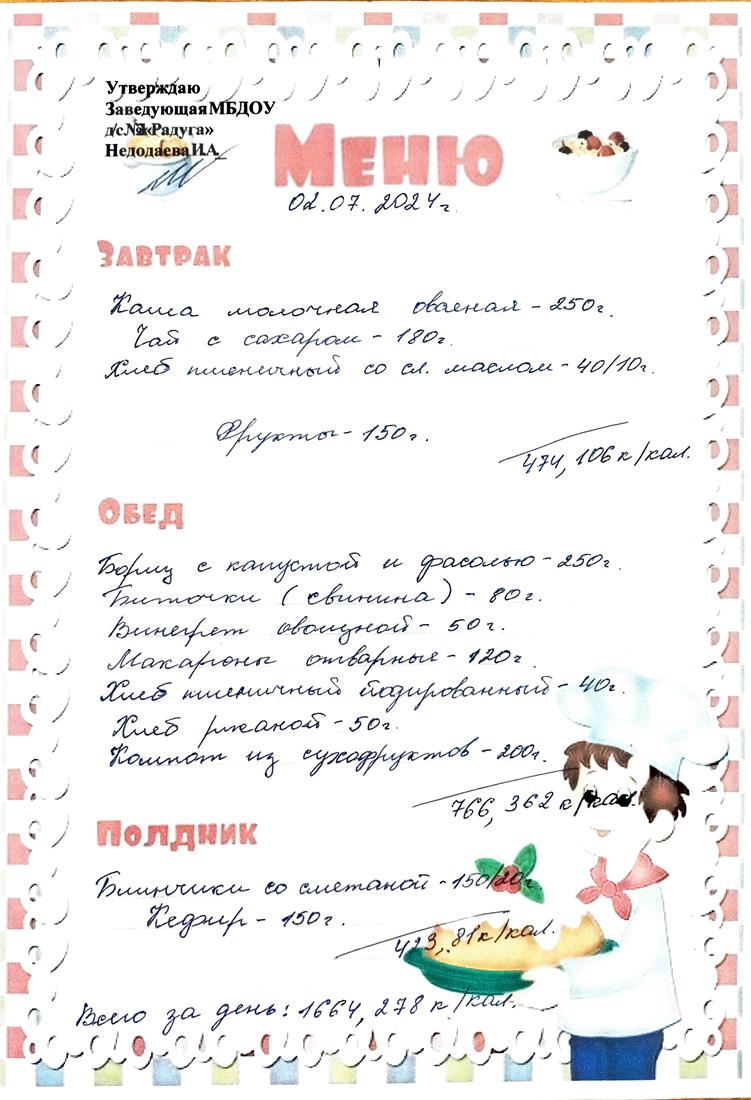 Утверждаю
Заведующая МБДОУ
д/с №2 «Радуга»
Недодаева И.А.
Меню
02.07.2024г.
Завтрак
Каша молочная овсеная - 250г.
Чай с сахаром - 180г.
Хлеб пшеничный со сл. маслом - 40/10г.
Фрукты - 150г.
474,106 к/кал.
Обед
Борщ с капустой и фасолью - 250г.
Биточки (свинина) - 80г.
Винегрет овощной - 50г.
Макароны отварные - 120г.
Хлеб пшеничный йодированный - 40г.
Хлеб ржаной - 50г.
Компот из сухофруктов - 200г.
766,362 к/кал.
Полдник
Блинчики со сметаной - 150/20г.
Кефир - 150г.
423,81 к/кал.
Всего за день: 1664,278 к/кал.